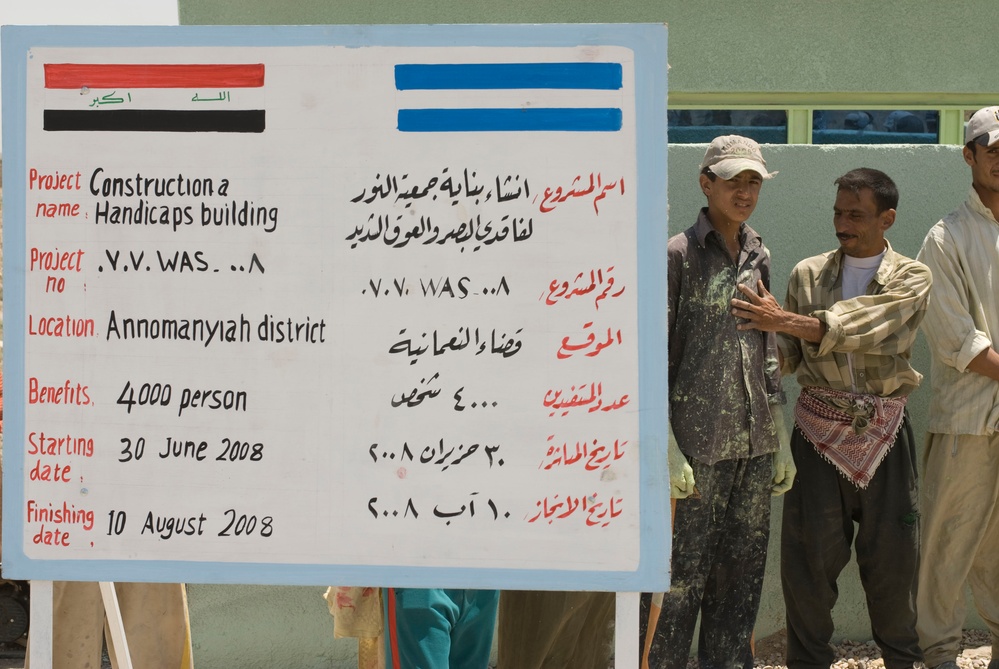 الله اكبر
Project name: Construction a
Handicaps building
Project no: .٧.٧. WAS_ ..٨
Location: Annomanyiah district
Benefits. 4000 person
Starting date: 30 June 2008
Finishing date: 10 August 2008
اسم المشروع/ انشاء بناية جمعية النور
لفاقدي البصر والعوق الشديد
رقم المشروع/ .٧.٧. WAS_..٨
الموقع قضاء النعمانية
عدد المستفيدين ٤٠٠٠ شخص
تاريخ المباشرة/ ٣٠ حزيران ٢٠٠٨
تاريخ الانجاز/ ١٠ آب ٢٠٠٨